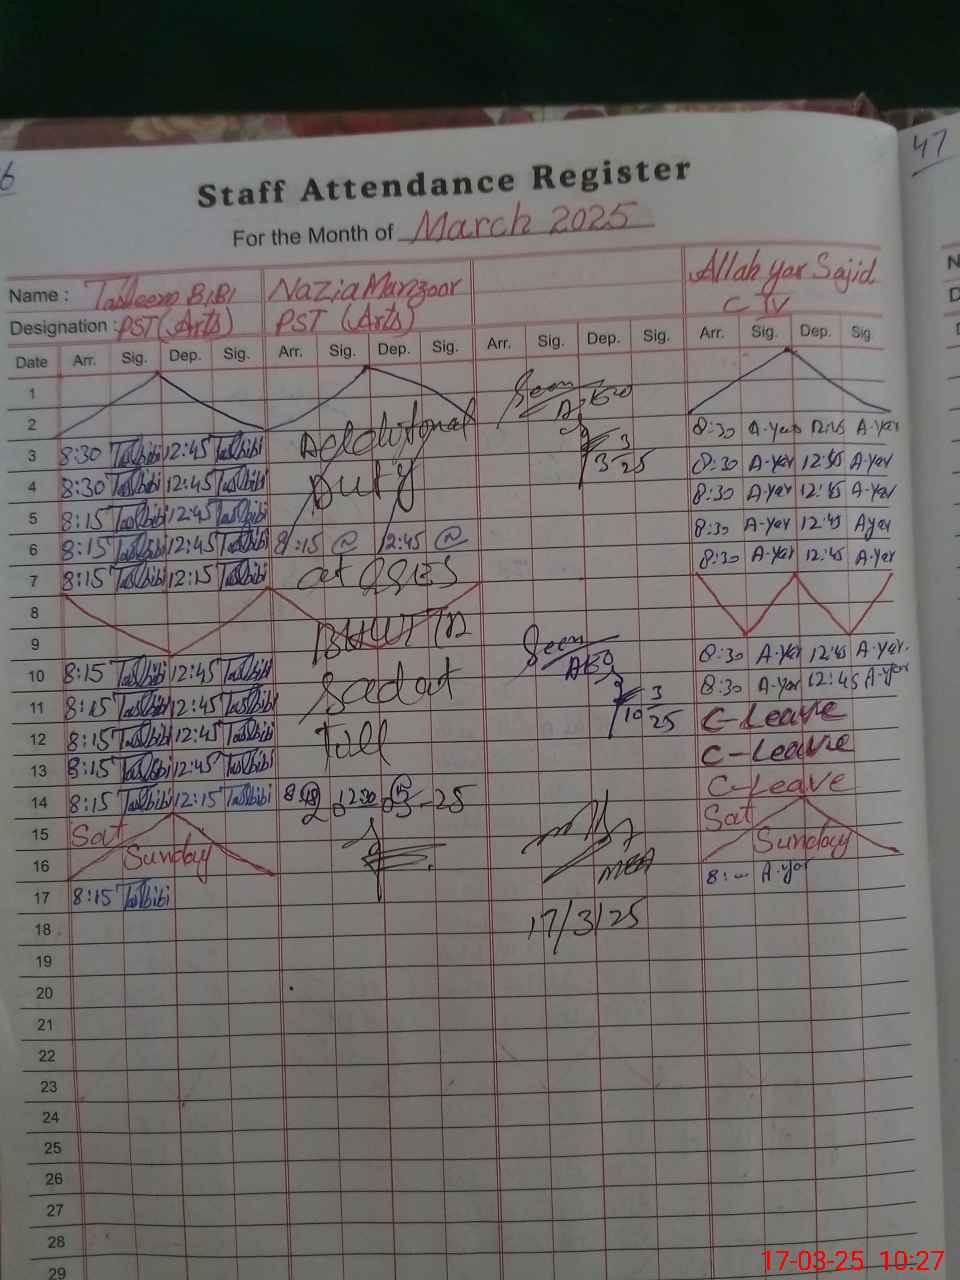 6
47
Staff Attendance Register
For the Month of March 2025
Name : Tasleem BiBi Nazia Manzoor Allah yar Sajid
Designation : PST (Arts) PST (Arts) C T V
Date Arr. Sig. Dep. Sig. Arr. Sig. Dep. Sig. Arr. Sig. Dep. Sig. Arr. Sig. Dep. Sig.
1 Seen
2
3 8:30 Tasbibi 12:45 Tasbibi Additional 3/3/25 8:30 A-yar 12:45 A-yar
4 8:30 Tasbibi 12:45 Tasbibi Duty 8:30 A-yar 12:45 A-yar
5 8:15 Tasbibi 12:45 Tasbibi 8:30 A-yar 12:45 A-yar
6 8:15 Tasbibi 12:45 Tasbibi 8:15 12:45 8:30 A-yar 12:45 Ayar
7 8:15 Tasbibi 12:15 Tasbibi at GGES 8:30 A-yar 12:45 A-yar
8
9 Seen
10 8:15 Tasbibi 12:45 Tasbibi Sadat 8:30 A-yar 12:45 A-yar.
11 8:15 Tasbibi 12:45 Tasbibi 10/3/25 8:30 A-yar 12:45 A-yar
12 8:15 Tasbibi 12:45 Tasbibi Tall C-Leave
13 8:15 Tasbibi 12:45 Tasbibi C-Leave
14 8:15 Tasbibi 12:15 Tasbibi 12:30 C-Leave
15 Sat Sat
16 Sunday MEA Sunday
17 8:15 Tasbibi 8: A-yar
18 17/3/25
19
20
21
22
23
24
25
26
27
28
29
N
D
17-03-25 10:27